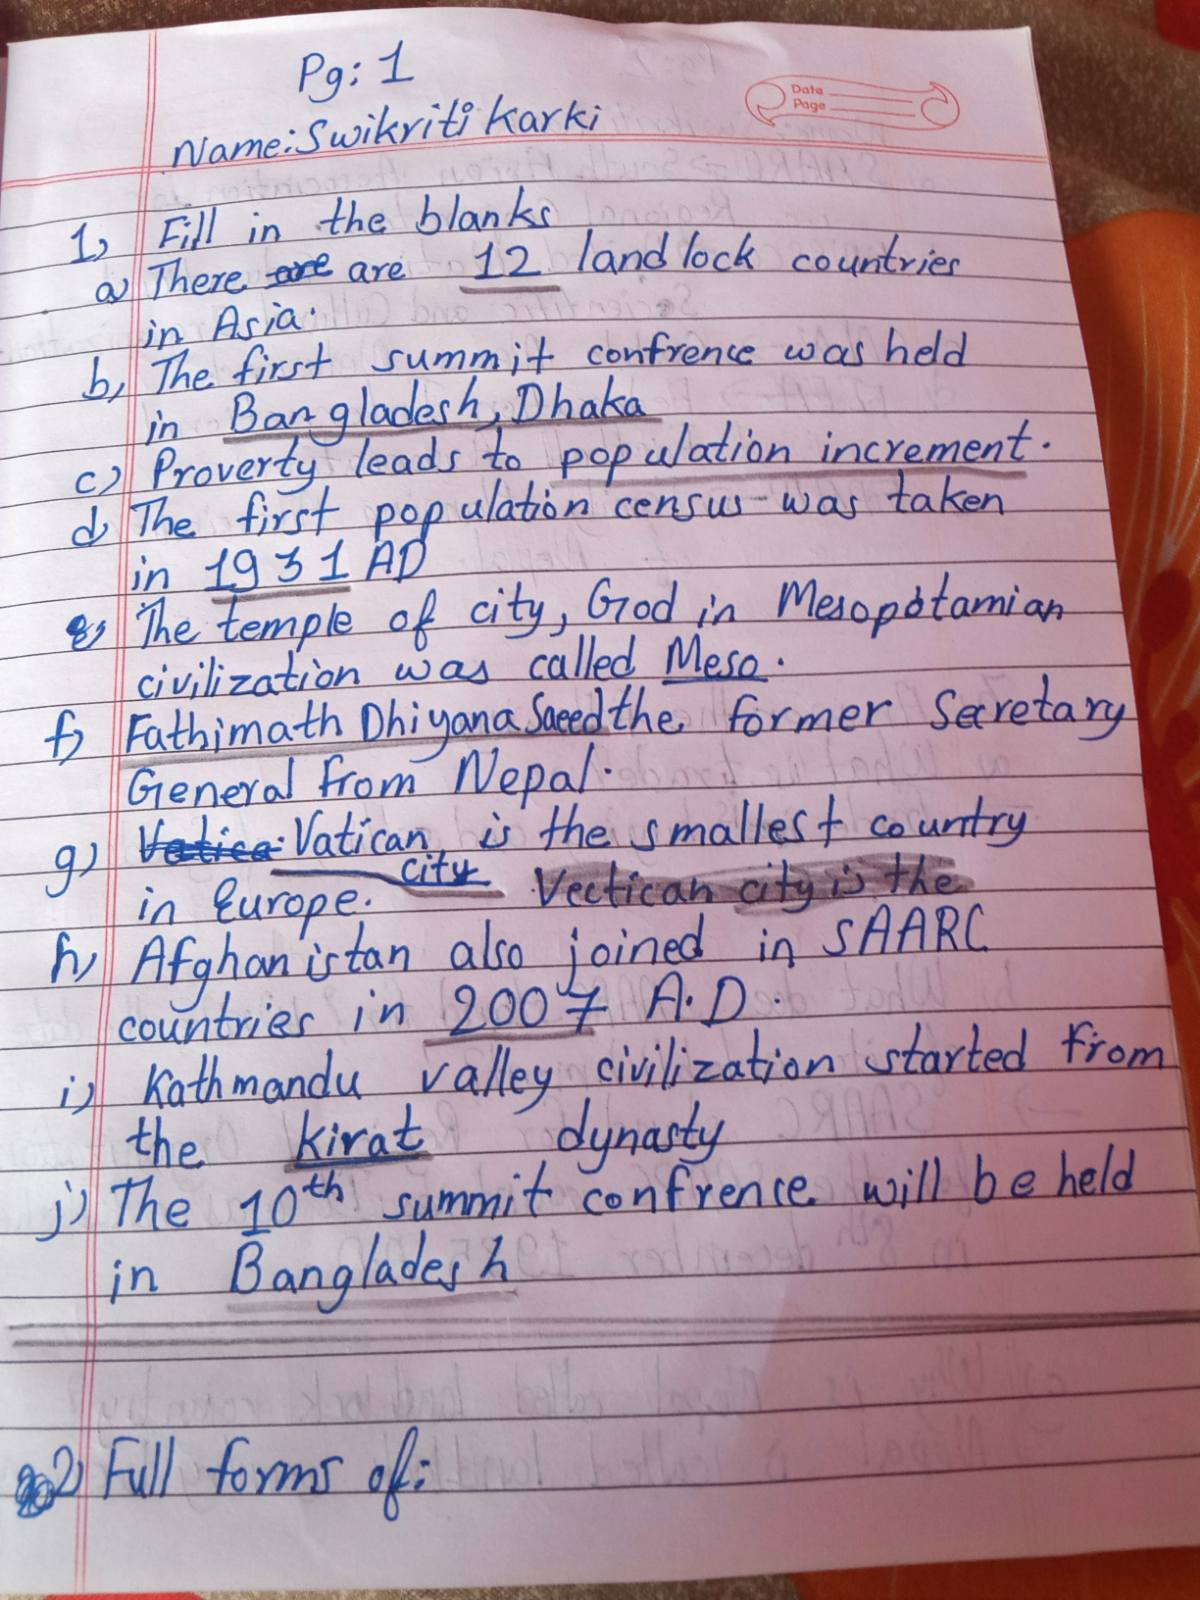 Pg: 1
Date
Page
Name: Swikriti Karki
1) Fill in the blanks
a) There are are 12 land lock countries
in Asia.
b) The first summit confrence was held
in Bangladesh, Dhaka
c) Proverty leads to population increment.
d) The first population census was taken
in 1931 AD
e) The temple of city, God in Mesopotamian
civilization was called Meso.
f) Fathimath Dhiyana Saeed the former Secretary
General from Nepal.
g) Vatica Vatican is the smallest country
city
in Europe. Vectican city is the
h) Afghanistan also joined in SAARC
countries in 2007 A.D.
i) Kathmandu valley civilization started from
the kirat dynasty
j) The 10th summit confrence will be held
in Bangladesh
2) Full forms of: